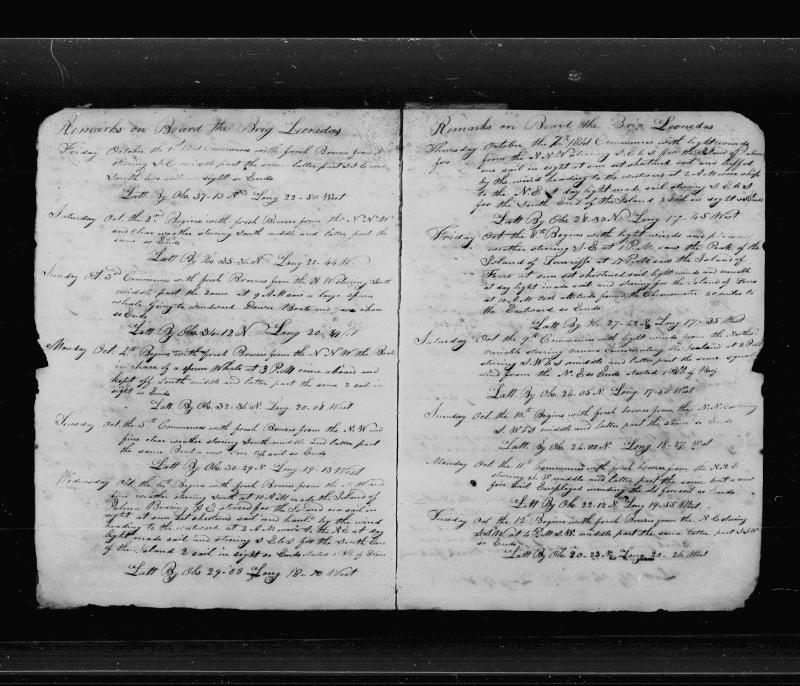 Remarks on Board the Brig Leonidas
Friday October the 1st Commences with fresh Breezes from
stering S.E. middle part the same latter part S.S.E
South in sight so Ends
Latt By Obs 37-13 N Long 22-50 West
Saturday Oct the 2nd Begins with fresh Breezes from the N.N.W
and clear weather stering South middle and latter part the
same so Ends
Latt By Obs 35-34 N Long 21-44 W
Sunday Oct 3rd Commences with fresh Breezes from the N W stering South
middle part the same at 9 AM saw a large sperm
whale Going to windward Down Boats and gave chase
so Ends
Latt By Obs 34-12 N Long 20-49 W
Monday Oct 4th Begins with fresh Breezes from the N N W the Boats
in chase of a sperm Whale at 3 PM came aboard and
kept off South middle and latter part the same 2 sail in
sight so Ends
Latt By Obs 32-36 N. Long 20-08 West
Tuesday Oct the 5th Commences with fresh Breezes from the N.W and
fine clear weather stering South middle and latter part
the same Bent a new sail so Ends
Latt By Obs 30-29 N. Long 19-13 West
Wednesday Oct the 6th Begins with fresh Breezes from the N W and
fine weather stering South at 10 AM made the Island of
Palma Bearing S E stered for the Island one sail in
sight at sun set shortened sail and hauld by the wind
heading to the westward at 2 AM wore to the N.E at day
light made sail and stering S E b S for the South End
of the Island 2 sail in sight so Ends started 1 of
Latt By Obs 29-08 Long 18-10 West
Remarks on Board the Brig Leonedas
Thursday October the 7th 1841 Commences with light winds
for from the N.N.W stering S.E b S for the Island of Palma
one sail in sight at sun set shortened sail and luffed
by the wind heading to the westward at 2 A.M wore ship
to the N.E. at day light made sail stering S E b S
for the South End of the Island 2 sail in sight so Ends
Latt By Obs 28-30 N Long 17-45 West
Friday Oct the 8th Begins with light winds and
weather stering S.E at 1 P.M. saw the Peak of the
Island of Teneriffe at 5 P.M saw the Island of
Ferro at sun set shortened sail light winds and variable
at day light made sail and stering for the Island of Ferro
at 10 A.M. altitude found the Chronometer 20 miles to
the Eastward so Ends
Latt By Obs 27-42 N Long 17-35 West
Saturday Oct the 9th Commences with light winds from the North
variable stering various Courses the Iseland at 2 P.M
stering S.W.b S middle and latter part the same
wind from the N.E. so Ends started 1 of
Latt By Obs 26-05 N. Long. 17-50 West
Sunday Oct the 10th Begins with fresh breeses from the N.N.E stering
S. W b S middle and latter part the same so Ends
Latt By Obs 24-00 N Long 18-27 West
Monday Oct the 11th Commences with fresh breeses from the N.N.E
stering S W middle and latter part the same bent a new
fore sail Employed mending the old fore sail so Ends
Latt By Obs 22-12 N Long 19-55 West
Tuesday Oct the 12th Begins with fresh Breeses from the N.E stering
S.S.W. at 4 P.M. S.W. middle part the same latter part S.S.W
so Ends
Latt By Obs 20-23 N. Long 20-26 West